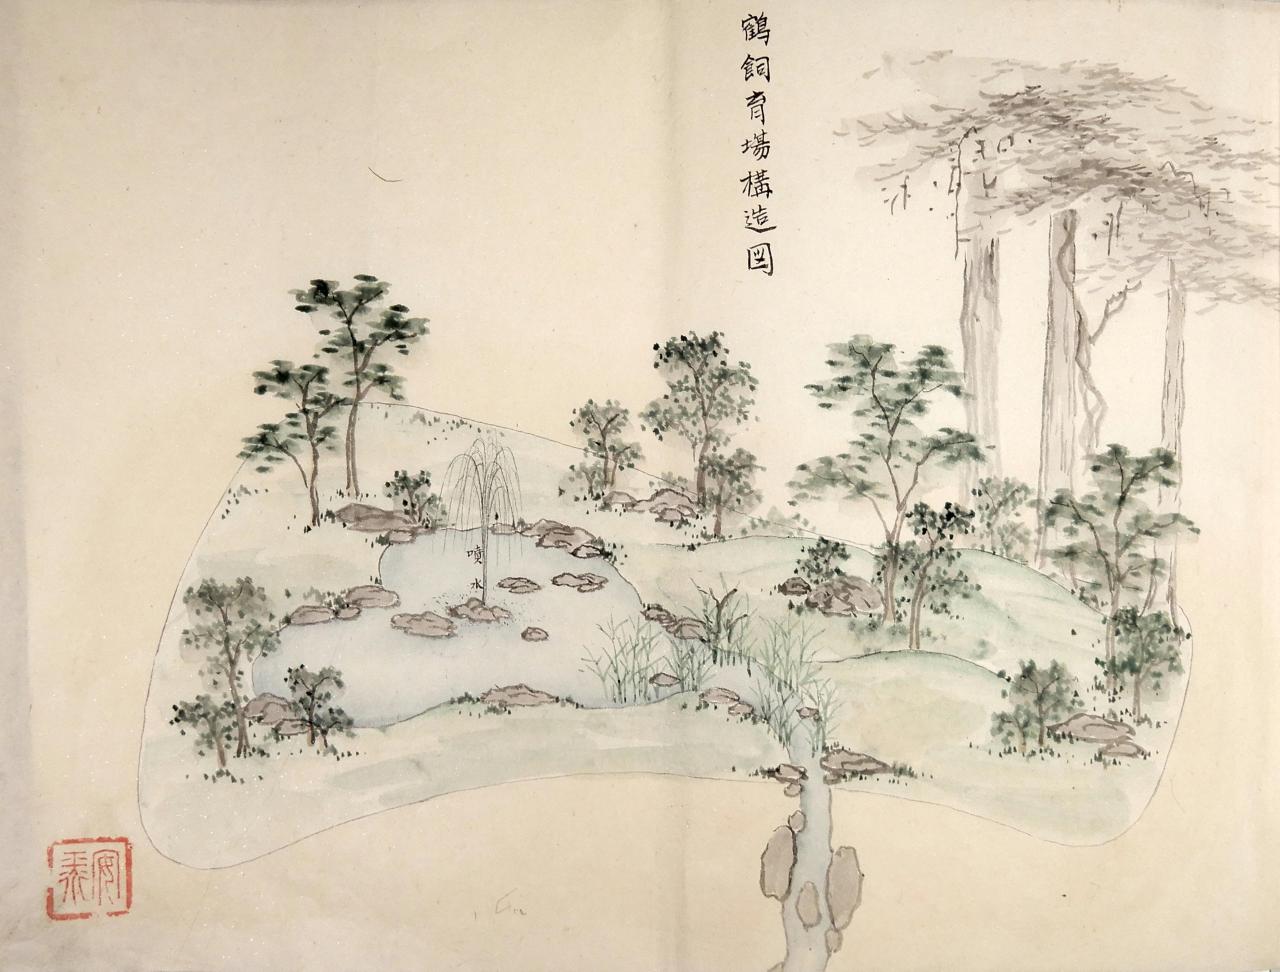 鶴飼育場構造図
噴水
安泰